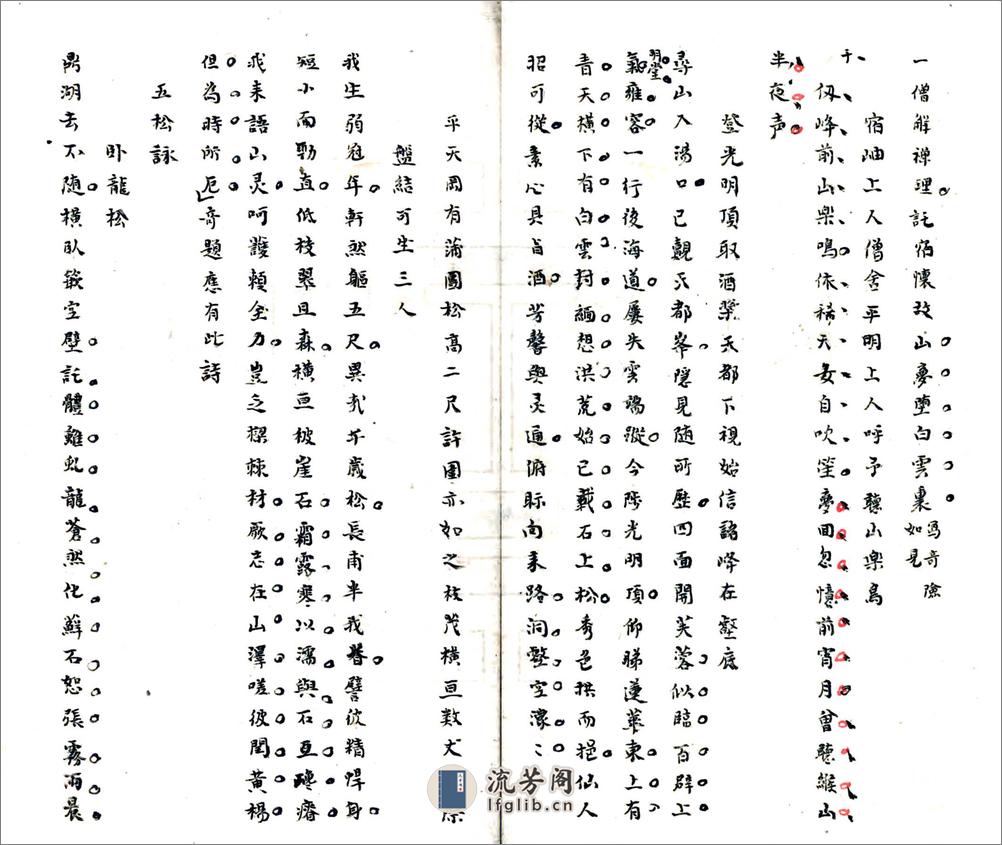 一僧解禪理託宿懷玫山夢墮白雲裏寫奇險如見
宿岫上人僧舍平明上人呼予聽山樂鳥
千仞峰前山樂鳴依稀天女自吹笙夢回忽憶前宵月曾聽緱山
半夜声
登光明頂取酒槳天都下視始信諸峰在壑底
尋山入湯口已覯天都峯隱見隨所歷四面開芙蓉似臨百辟上
氣雍容一行後海道屢失雲端蹤今陟光明頂仰睇蓮華東上有
羽堂
青天橫下有白雲封緬想洪荒始已載石上松秀色拱而挹仙人
招可從素心具旨酒芳馨與灵通俯眎向來路洞壑空濛〻
平天岡有蒲團松高二尺許圍亦如之枝茂橫亘数丈
盤結可坐三人
我生弱冠年軒然軀五尺異哉千歲松長甫半我昔譬彼精悍身
短小而勁直低枝翠且森橫亘被崖石霜露寒以濡與石互磽瘠
我来語山灵呵護頼全力豈乏樑棟材厥志在山澤嗟彼閏黃楊
但為時所厄奇題應有此詩
五松詠
卧龍松
鼎湖去不随橫臥簸空壁託體雜虬龍蒼然化蘚石怒張霧雨晨
流芳阁
lfglib.cn